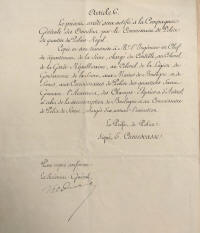 Article 6.
Le présent arrêté sera notifié à la Compagnie
Générale des Omnibus par le Commissaire de Police
du quartier du Palais-Royal.
Copie en sera transmise à Mr l'Ingénieur en Chef
du département de la Seine, chargé du Contrôle, au Colonel de
la Garde Républicaine, au Colonel de la Légion de
Gendarmerie de la Seine, aux Maires de Boulogne et de
aux Commissaires de Police des quartiers Saint-
Germain l'Auxerrois, des Champs-Elysées, d'Auteuil
et celui de la circonscription de Boulogne et au Commissaire
de Police de chargés d'en assurer l'exécution.
Le Préfet de Police,
Signé, E. Camescasse.
Pour copie conforme
Le Secrétaire Général,